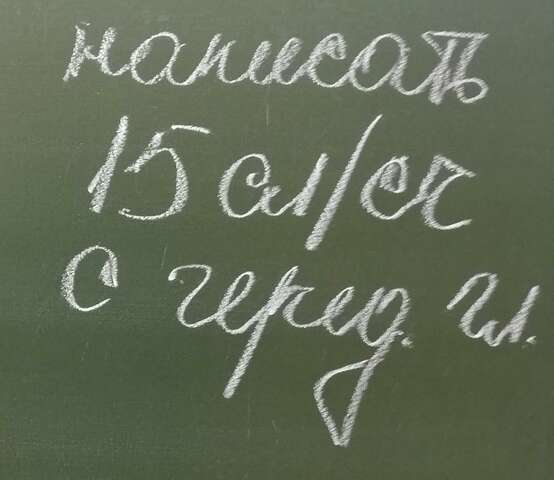 написать
15 сл/сч
с черед. гл.